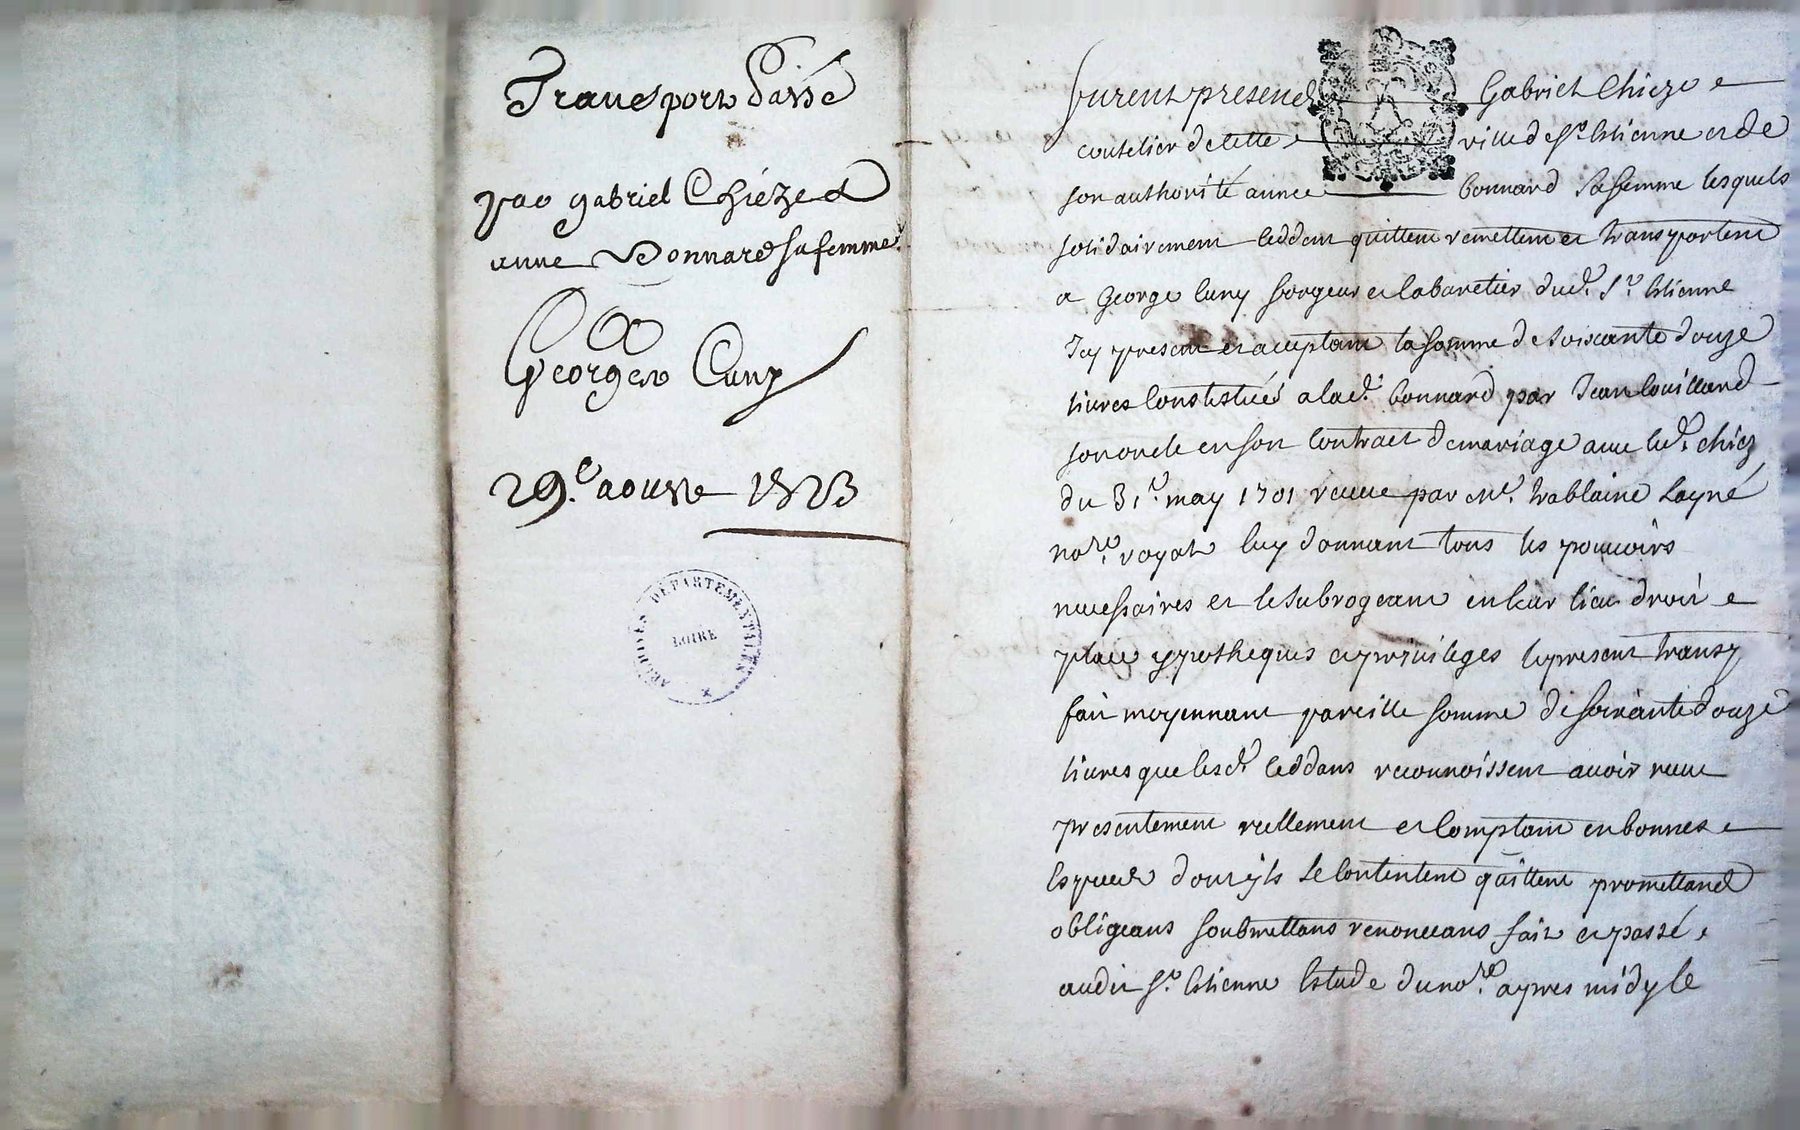 Transport passé
par gabriel Chiéze &
anne Bonnard sa femme
a
George Cuny
29.e aoust 1723
ARCHIVES DÉPARTEMENTALES
LOIRE
furent presend Gabriel Chieze
coutelier de cette ville de st. Estienne et de
son authorité anne bonnard sa femme lesquels
solidairement ceddent quittent remettent et transportent
a George Cuny forgeur et Cabaretier dud. st. Estienne
Icy present et acceptant la somme de soixante douze
livres Constituée a lad. bonnard par Jean Couilland
son oncle en son Contract de mariage avec led. chiez
du 31e. may 1701 receue par Me. trablaine Layné
nore. royal luy donnant tous les pouvoirs
necessaires et le subrogeant en leur lieu droit
place ypotheques et privileges le present transp
fait moyennant pareille somme de soixante douze
livres que lesd. ceddans reconnoissent avoir receu
presentement reellement et Comptant en bonnes
Especes dont ils se Contentent quittent promettand
obligeans soubmettans renonceans fait et passé
audit st. Estienne Estude du nore. apres midy le